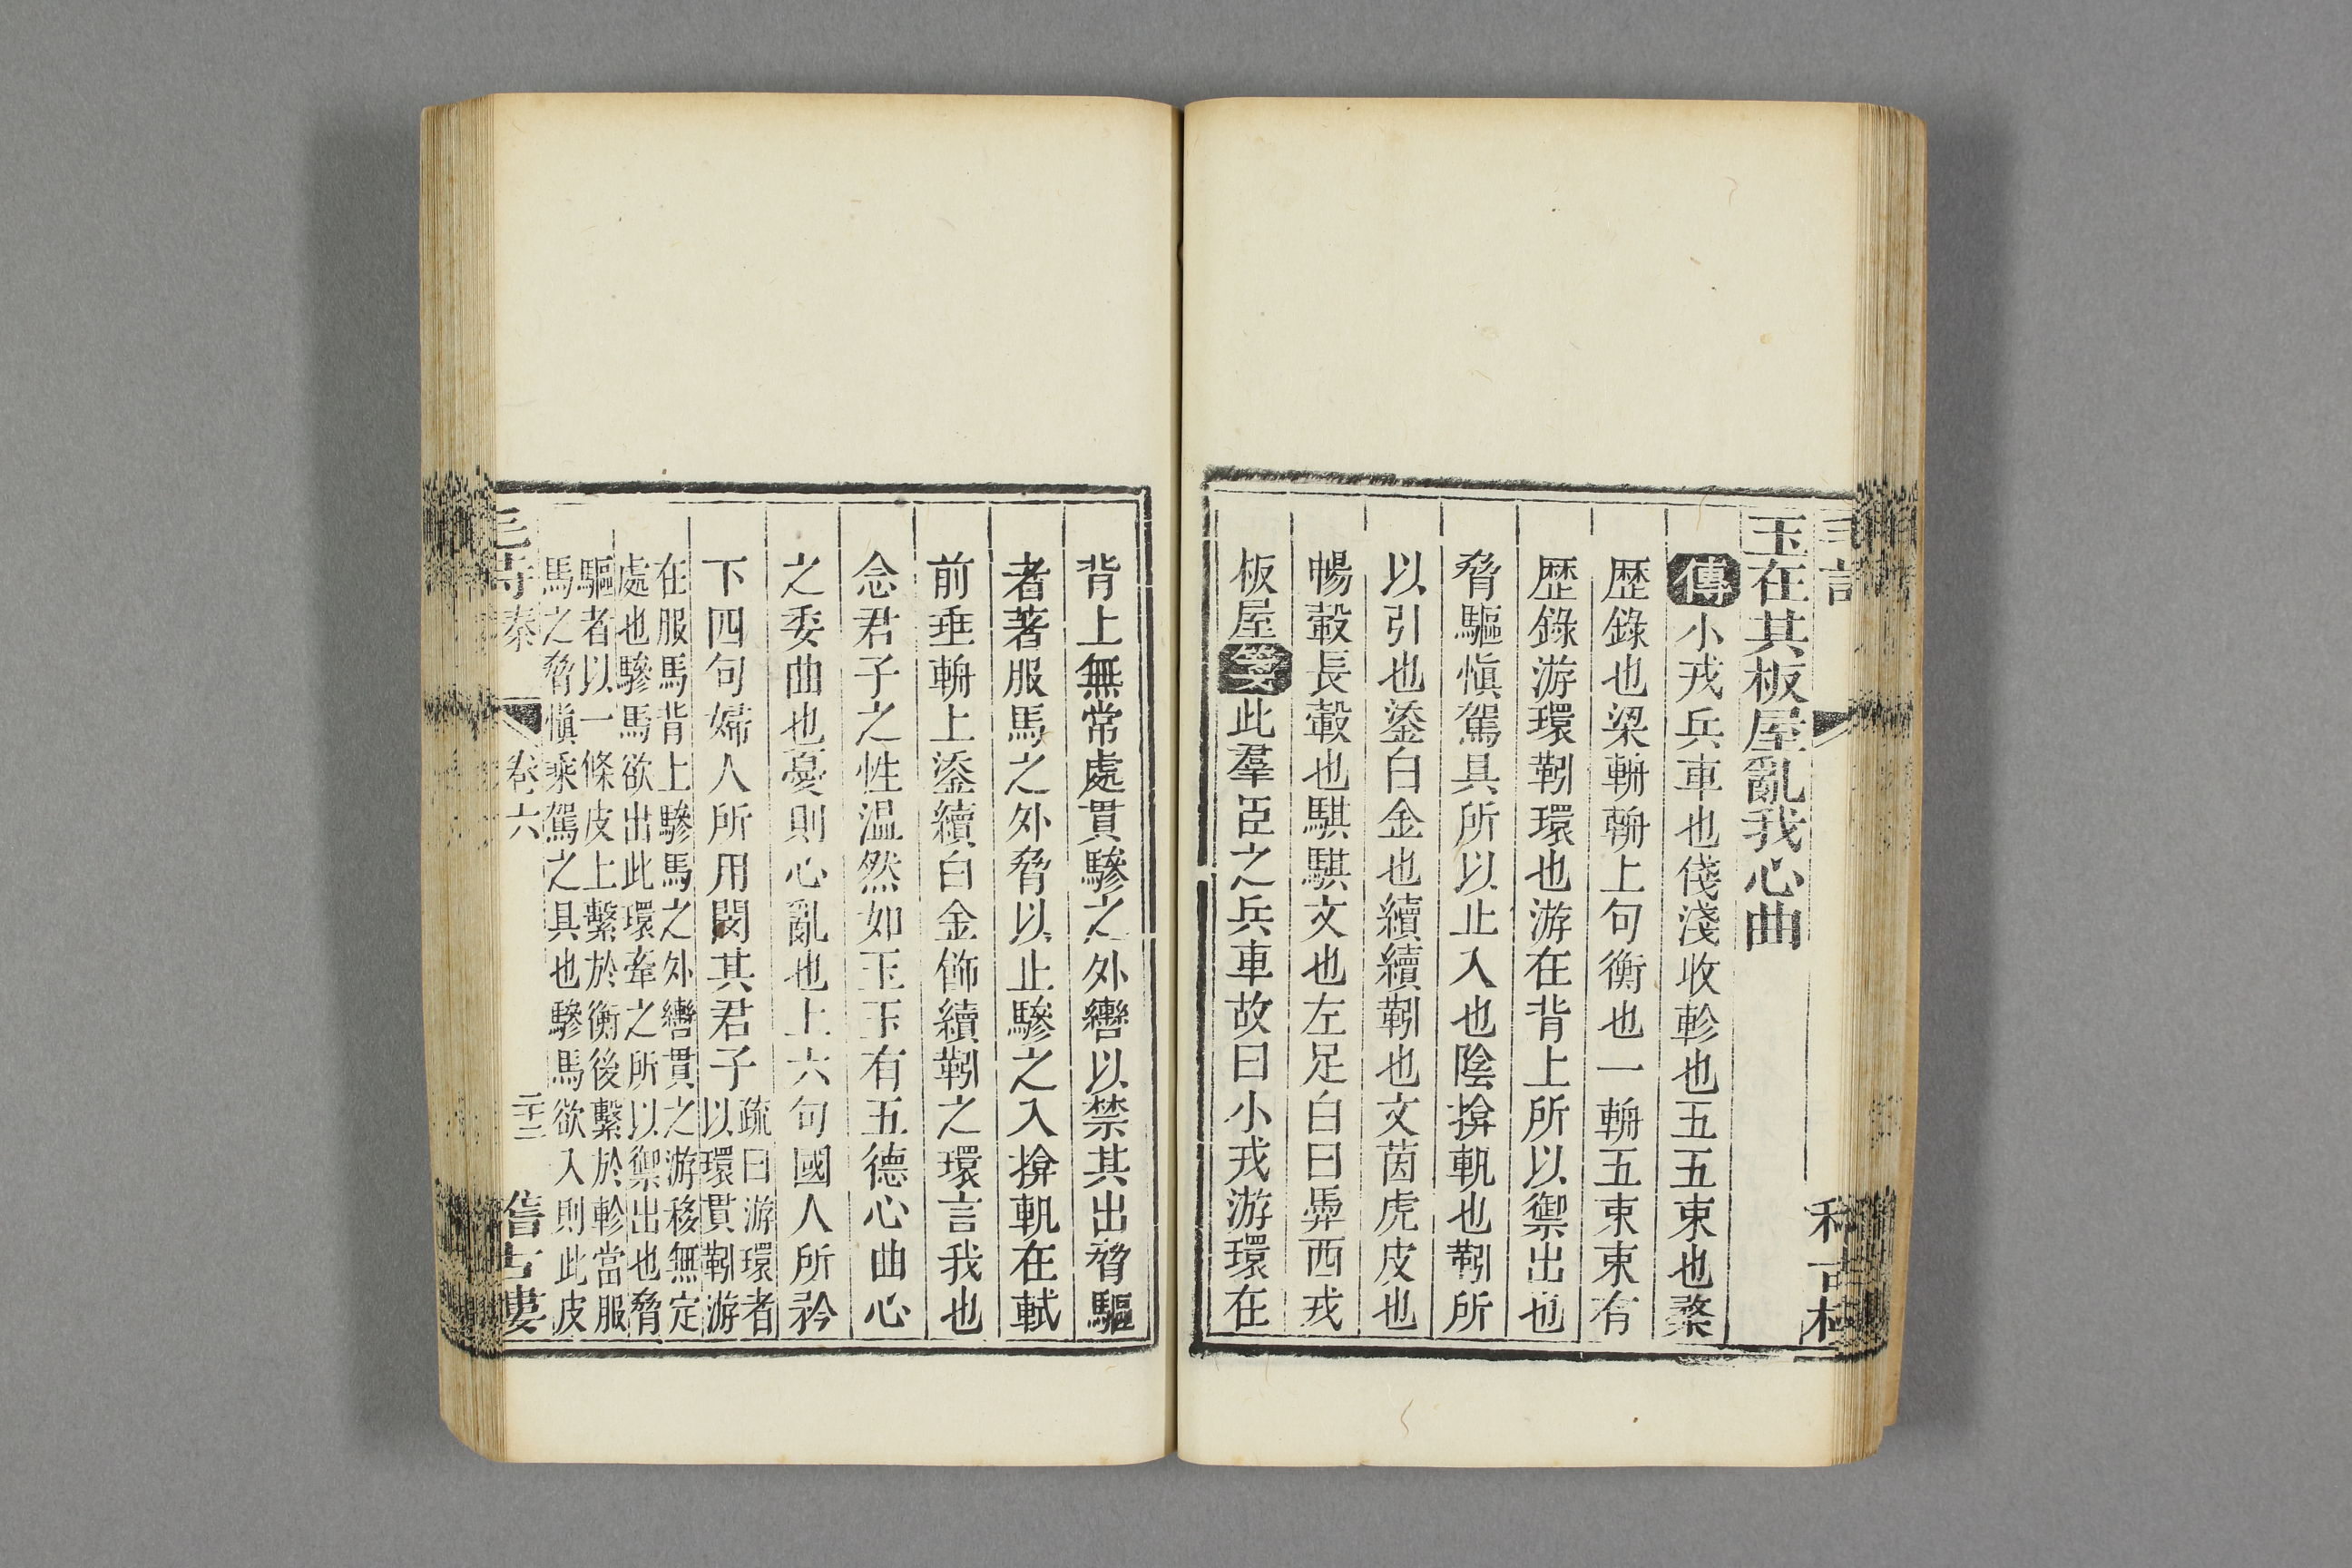 玉在其板屋亂我心曲
傳小戎兵車也俴淺收軫也五五束也楘
歴錄也梁輈輈上句衡也一輈五束束有
歴錄游環靷環也游在背上所以禦出也
脅驅愼駕具所以止入也陰揜軓也靷所
以引也鋈白金也續續靷也文茵虎皮也
暢轂長轂也騏騏文也左足白曰馵西戎
板屋箋此羣臣之兵車故曰小戎游環在
背上無常處貫驂之外轡以禁其出脅驅
者著服馬之外脅以止驂之入揜軓在軾
前垂輈上鋈續白金飾續靷之環言我也
念君子之性温然如玉玉有五德心曲心
之委曲也憂則心亂也上六句國人所矜
下四句婦人所用閔其君子疏曰游環者
以環貫靷游
在服馬背上驂馬之外轡貫之游移無定
處也驂馬欲出此環牽之所以禦出也脅
驅者以一條皮上繫於衡後繫於軫當服
馬之脅愼乘駕之具也驂馬欲入則此皮
秦 卷六